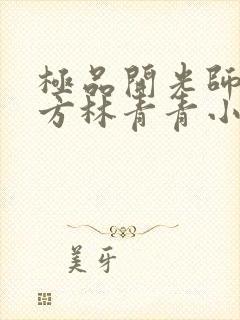 極品開光師
方林青青小
美牙